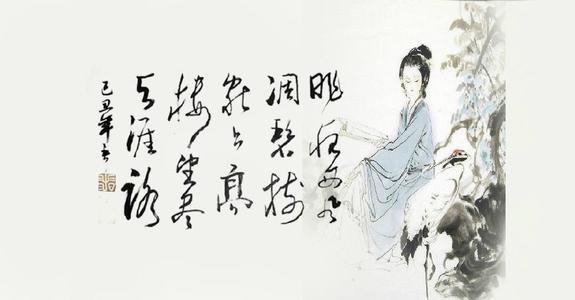 昨夜西风
凋碧树
独上高
楼望尽
天涯路
己丑年